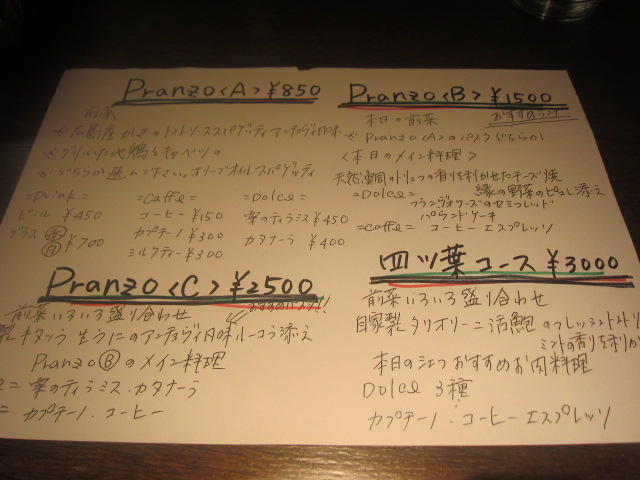 Pranzo <A> ¥850
前菜
広島産かきのトマトソーススパゲッティアンチョヴィ風味
グリルした地鶏とキャベツの
どちらか選んで下さい。オリーブオイルスパゲッティ
=Drink=
ビール ¥450
グラス 赤 白 ¥700
=Caffe=
コーヒー ¥150
カプチーノ ¥300
ミルクティー ¥300
=Dolce=
栗のティラミス ¥450
カタラーラ ¥400
Pranzo <B> ¥1500
おすすめっス!
本日の前菜
Pranzo <A>のパスタどちらか
<本日のメイン料理>
天然真鯛のトリュフの香りを利かせたチーズ焼
縁の野菜のピュレ添え
=Dolce=
フランヴォワーズのセミフレッド
パウンドケーキ
=caffe= コーヒー エスプレッソ
Pranzo <C> ¥2500
前菜いろいろ盛り合わせ
製 キタッラ 生うにのアンチョヴィ風味 ルーコラ添え
Pranzo Ⓑのメイン料理
= 栗のティラミス・カタラーラ
= カプチーノ・コーヒー
四ツ葉コース ¥3000
前菜いろいろ盛り合わせ
自家製タリオリーニ活鮑のフレッシュトマト
ミントの香りを利か
本日のシェフおすすめお肉料理
Dolce 3種
カプチーノ・コーヒー エスプレッソ